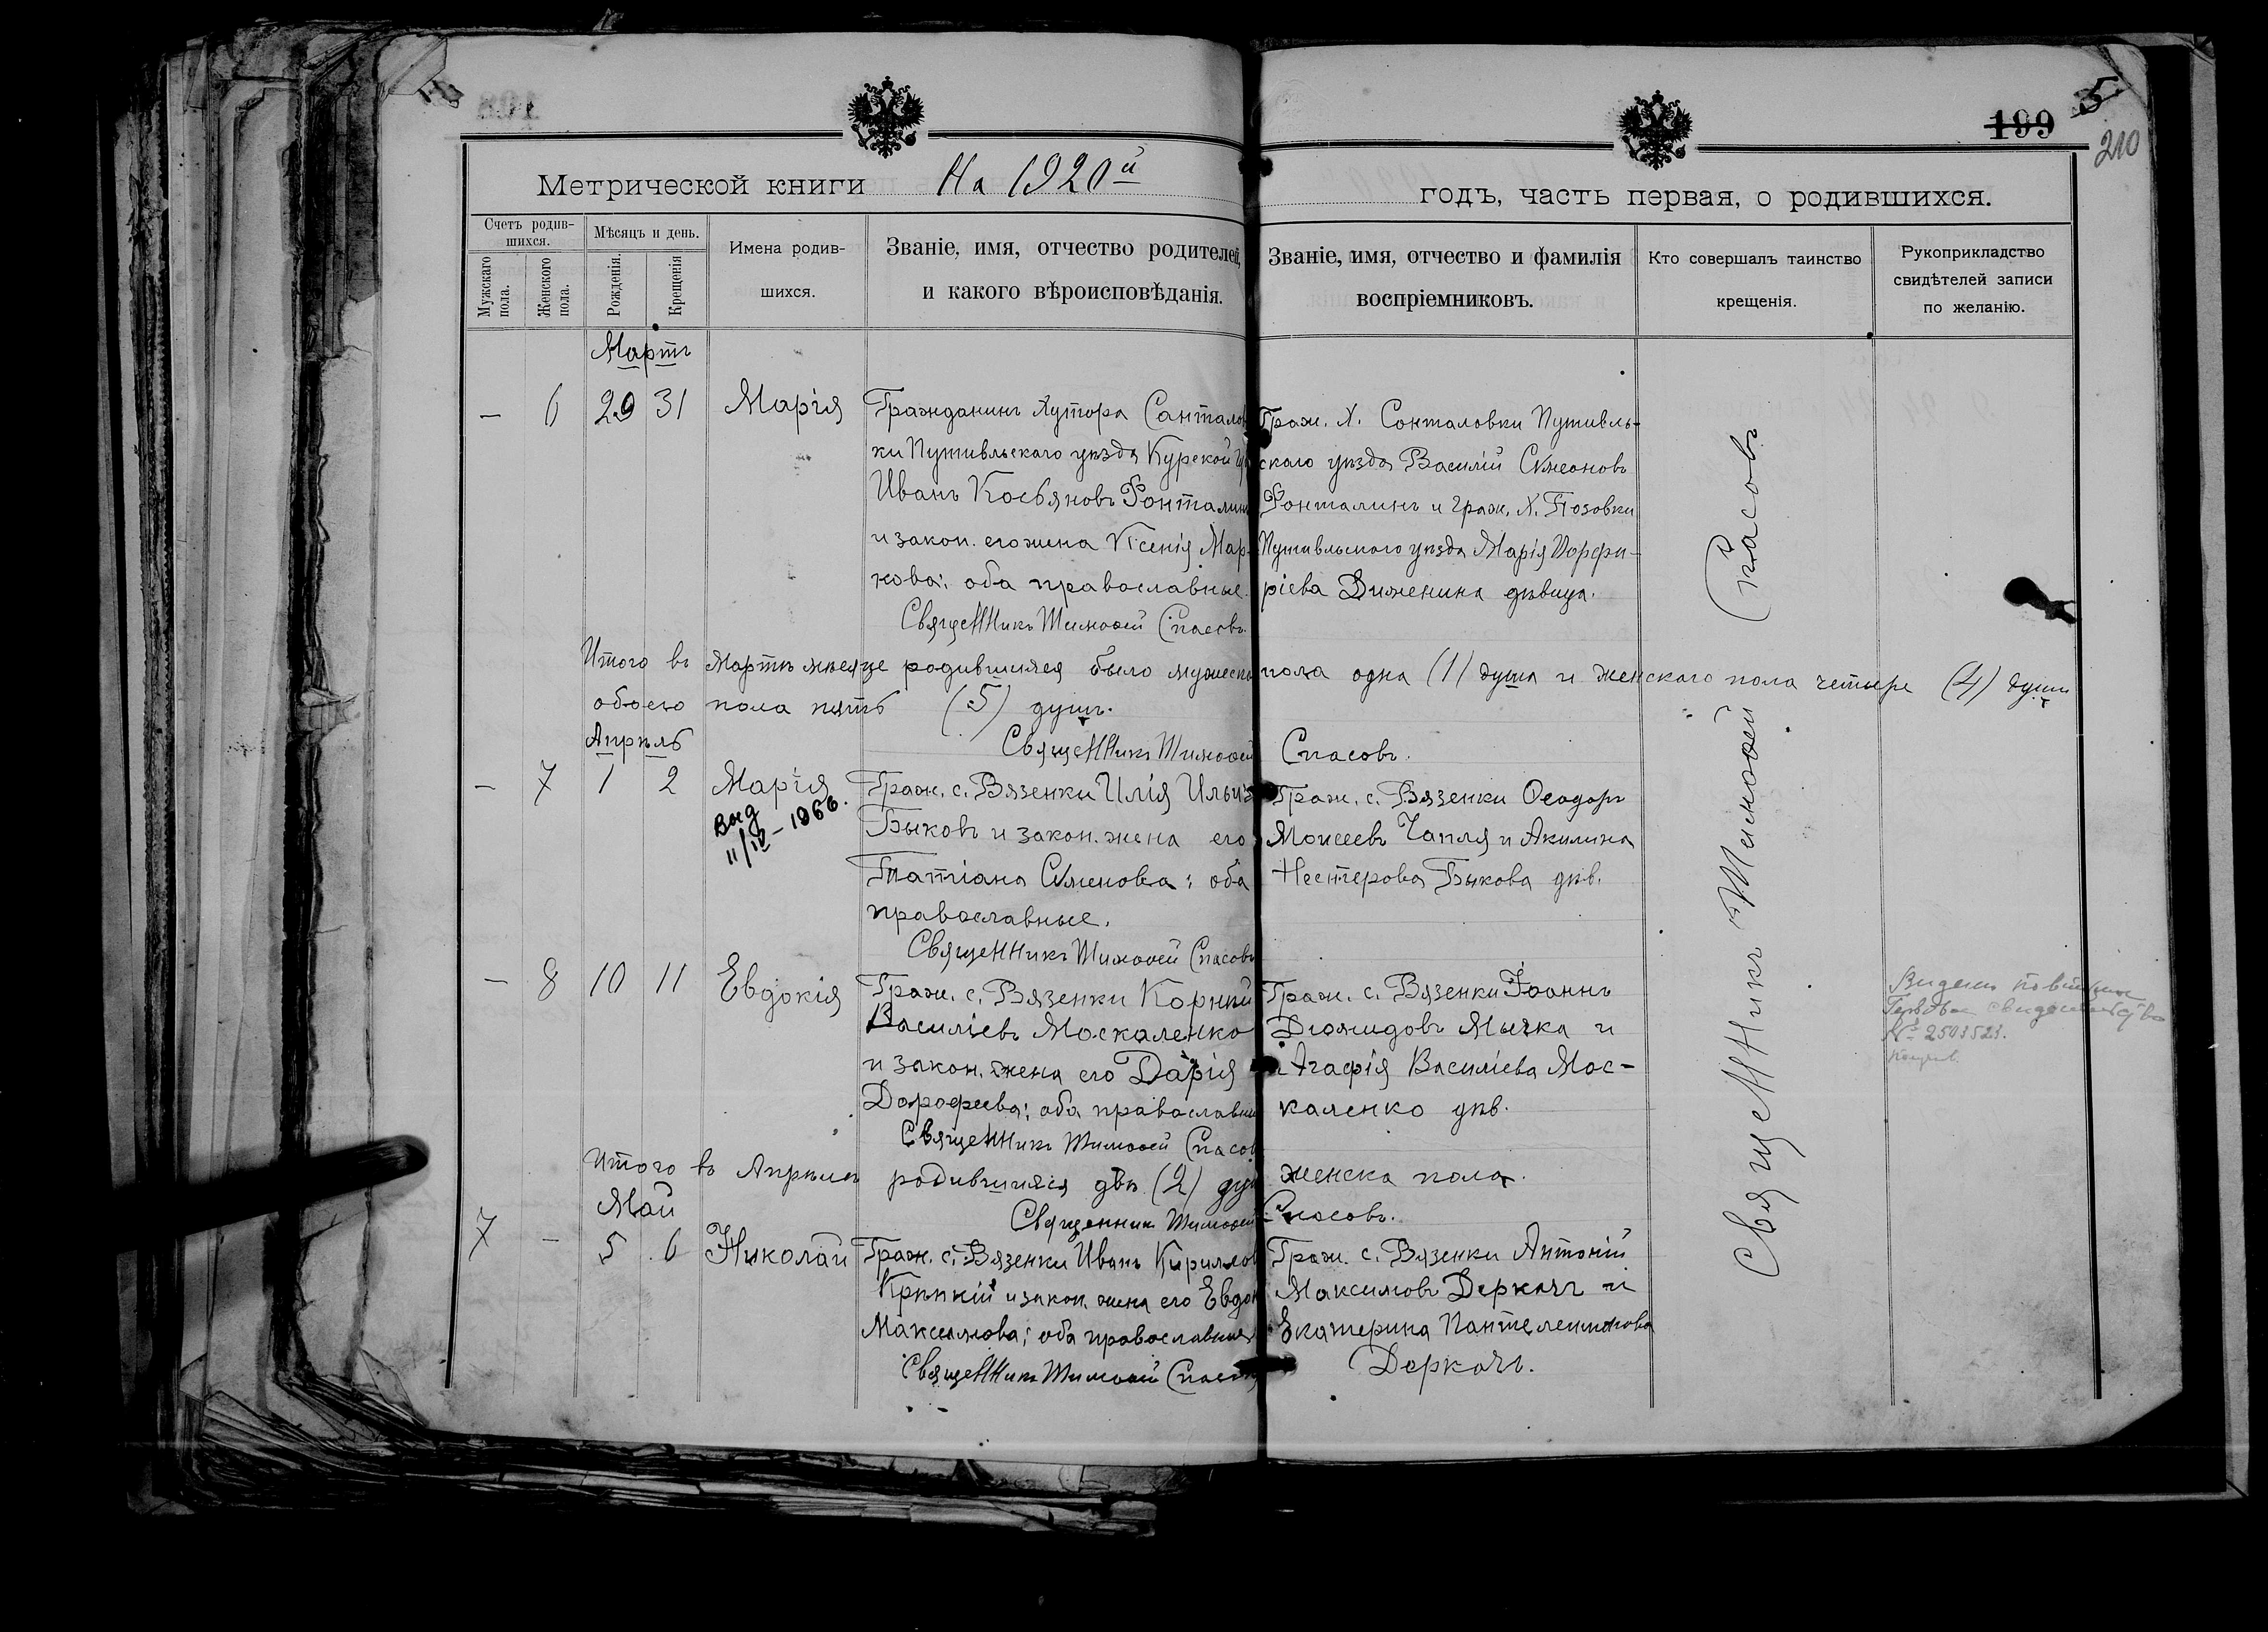 199 5
210
Метрической книги На 1920й годъ, часть первая, о родившихся.
Счетъ родив-
шихся.
Мужскаго
пола.
Женского
пола.
Мѣсяцъ и день.
Рожденія.
Крещенія
Имена родив-
шихся.
Званіе, имя, отчество родителей,
и какого вѣроисповѣданія.
Званіе, имя, отчество и фамилія
воспріемниковъ.
Кто совершалъ таинство
крещенія.
Рукоприкладство
свидѣтелей записи
по желанію.
Мартъ
— 6 29 31 Марія
Гражданинъ Хутора Санталов
ки Путивльскаго уѣзда Курской Гу
Иванъ Косьяновъ Фонталинъ
и закон. его жена Ксенія Мар-
кова; оба православные.
Священникъ Тимоѳей Спасовъ.
Граж. Х. Сонталовки Путивль-
скаго уѣзда Василій Сѵмеоновъ
Фонталинъ и граж. Х. Позовки
Путивльского уѣзда Марія Порфи-
ріева Диженина дѣвица.
Итого въ Мартѣ мѣсяце родившихся было мужеска пола одна (1) душа и женского пола четыре (4) души
обоего пола пять (5) душъ.
Священникъ Тимоѳей Спасовъ.
Апрѣль
— 7 1 2 Марія
выд
11/IV-1966.
Граж. с. Вязенки Илія Ильи
Быковъ и закон. жена его
Татіана Сѵменова; оба
православные.
Священникъ Тимоѳей Спасовъ
Граж. с. Вязенки Ѳеодоръ
Моисеевъ Чапля и Акилина
Нестерова Быкова дѣв.
— 8 10 11 Евдокія
Граж. с. Вязенки Корній
Василіевъ Москаленко
и закон. жена его Дарія
Дорофеева; оба православны
Священникъ Тимоѳей Спасов
Граж. с. Вязенки Іоаннъ
Диомидовъ Мычка и
Агафія Василіева Мос-
каленко дѣв.
свидетельство
№ 2503523.
Итого въ Апрѣлѣ родившихся двѣ (2) душ женска пола.
Священникъ Тимоѳей Спасовъ.
Май
7 — 5 6 Николай
Граж. с. Вязенки Иванъ Кириллов
Крѣпкій и закон. жена его Евдок
Максимова; оба православные
Священникъ Тимоѳей Спасовъ
Граж. с. Вязенки Антоній
Максимовъ Деркачъ и
Екатерина Пантелеимонова
Деркачъ.
Священникъ Тимоѳей Спасовъ